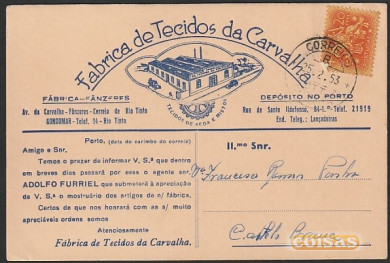 Fabrica de Tecidos da Carvalha
CORREIOS
2.53
TECIDOS DE SEDA E MISTOS
FÁBRICA-FÂNZERES
Av. da Carvalha - Fânzeres - Correio de Rio Tinto
GONDOMAR - Telef. 14 - Rio Tinto
DEPÓSITO NO PORTO
Rua de Santo Ildefonso, 84-1.º - Telef. 21919
End. Teleg.: Lançadeiras
Porto, (data do carimbo do correio)
Amigo e Snr.
Temos o prazer de informar V. S.ª que dentro
em breves dias passará por essa o agente snr.
ADOLFO FURRIEL que submeterá à apreciação
de V. S.ª o mostruário dos artigos de n/ fábrica.
Certos de que nos honrará com as s/ muito
apreciáveis ordens somos
Atenciosamente
Fábrica de Tecidos da Carvalha.
Il.mo Snr.
Francisco
Castelo Branco
coisas